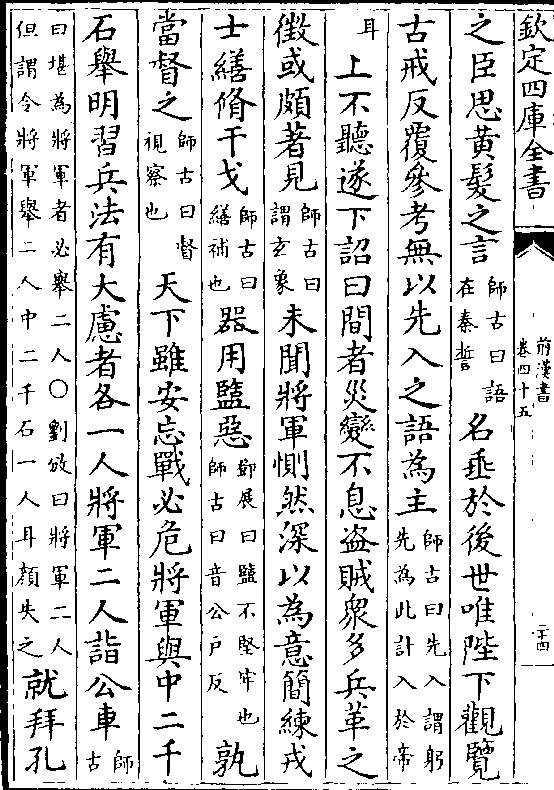 欽定四庫全書
前漢書
卷四十五
二十四
之臣思黃髮之言師古曰語在秦誓名垂於後世唯陛下觀覽
古戒反覆參考無以先入之語為主師古曰先入謂躬先為此計入於帝
耳上不聽遂下詔曰間者災變不息盜賊衆多兵革之
徵或頗著見師古曰謂玄象未聞將軍惻然深以為意簡練戎
士繕脩干戈師古曰繕補也器用盬惡鄧展曰盬不堅牢也師古曰音公戶反孰
當督之師古曰督視察也天下雖安忘戰必危將軍與中二千
石舉明習兵法有大慮者各一人將軍二人詣公車師古
曰堪為將軍者必舉二人○劉攽曰將軍二人但謂令將軍舉二人中二千石一人耳顔失之就拜孔